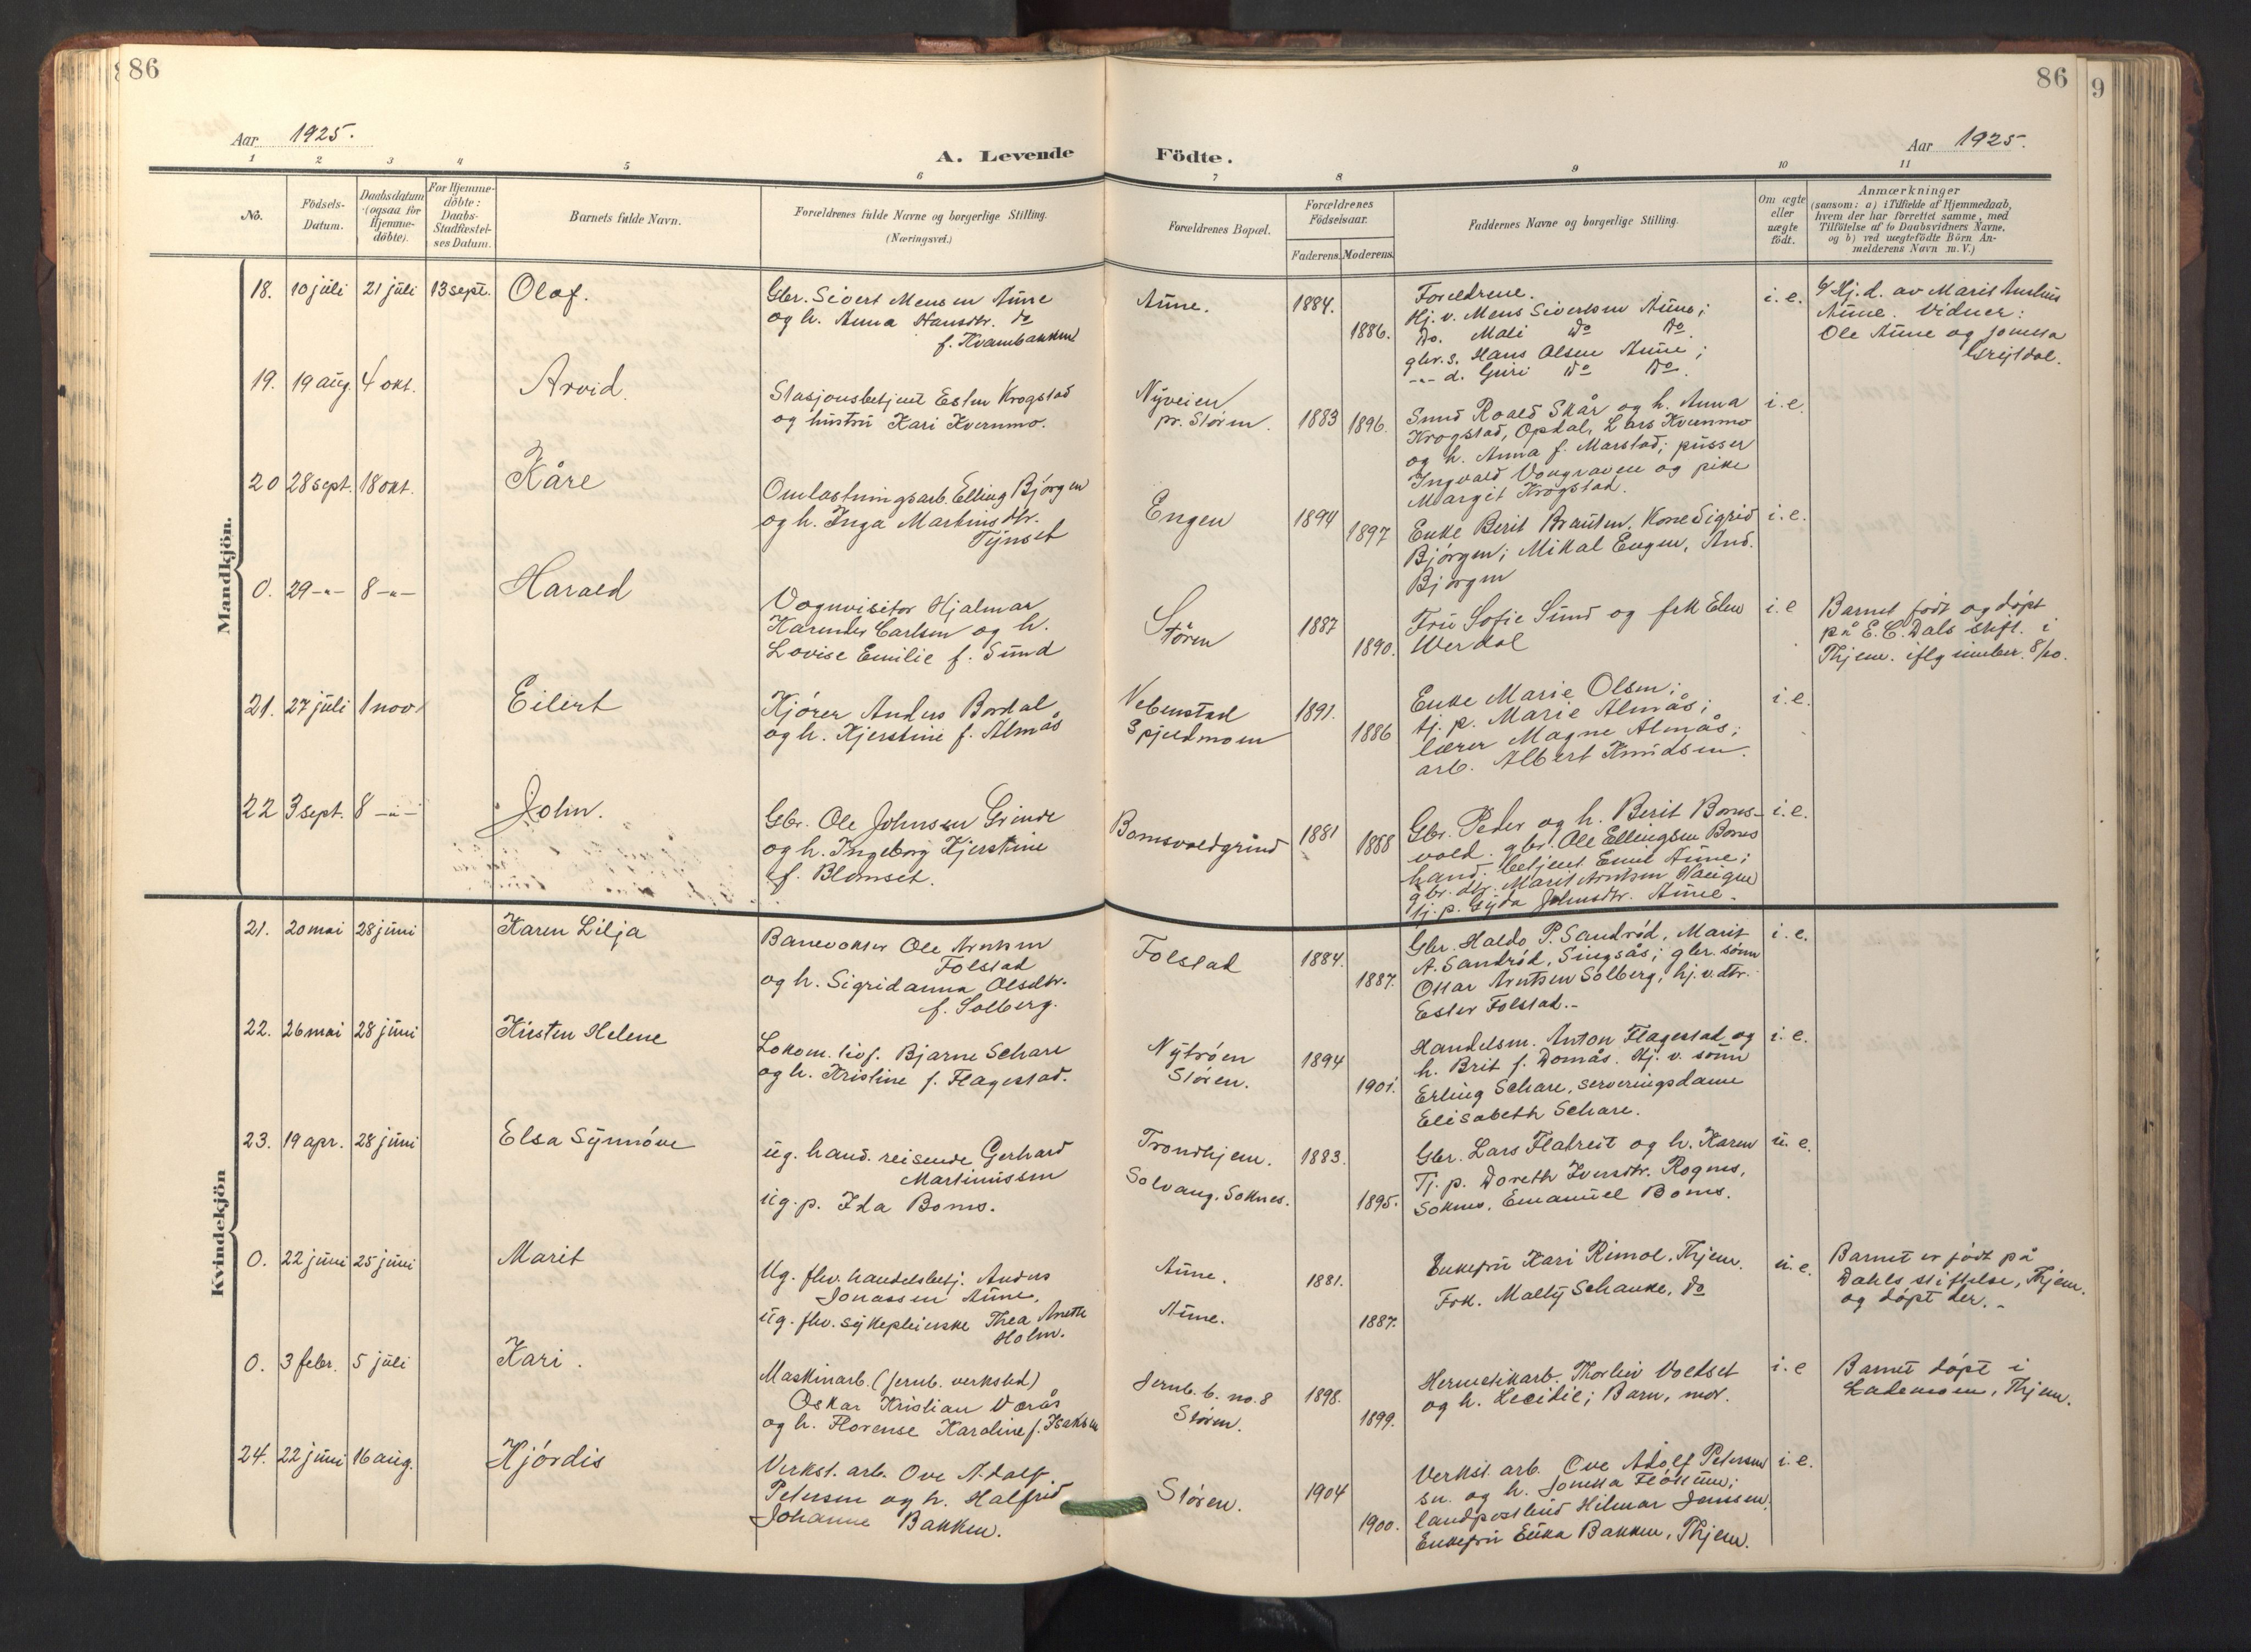 86
86
9
Aar 1925.
A. Levende Födte.
Aar 1925.
1 2 3 4 5 6 7 8 9 10 11
No.
Födsels-
Datum.
Daabsdatum
(ogsaa for
Hjemme-
döbte).
For Hjemme-
döbte:
Daabs-
Stadfæstel-
ses Datum.
Barnets fulde Navn.
Forældrenes fulde Navne og borgerlige Stilling.
(Næringsvei.)
Forældrenes Bopæl.
Forældrenes
Födselsaar.
Faderens. Moderens.
Faddernes Navne og borgerlige Stilling.
Om ægte
eller
uægte
födt.
Anmærkninger
(saasom: a) i Tilfælde af Hjemmedaab,
hvem der har forrettet samme, med
Tilföielse af to Daabsvidners Navne,
og b) ved uegtefödte Börn An-
melderens Navn m.V.)
Mandkjön.
18. 10 juli 21 juli 13 sept. Olaf.
Gbr. Sivert Mensen Aune
og h. Anna Hansdtr. do
f. Kvambakken
Aune.
1884.
1886.
Foreldrene.
Hj. v. Mens Sivertsen Aune;
Do. Mali do do.
gbr. s. Hans Olsen Aune;
-"- d. Guri do do.
i. e.
Hj. d. av Marit
Aune. Vidner:
Ole Aune og
19. 19 aug. 4 okt. Arvid.
Stasjonsbetjent Esten Krogstad
og hustru Kari Kvernmo.
Nyveien
pr. Støren.
1883 1896.
Smed Roald Skår og h. Anna
Krogstad, Opdal, Lars Kvernmo
og h. Anna f. Marstad; pusser
Ingvald Vongraven og pike
Margit Krogstad.
i. e.
20 28 sept. 18 okt. Kåre
Omlastningsarb. Elling Bjørgen
og h. Inga Martinsdtr.
Tynset
Engen
1894
1897
Enke Berit Brauten, Kone Sigrid
Bjørgen; Mikal Engen, And.
Bjørgen
i. e.
0. 29 -"- 8 -"- Harald
Vognvisitør Hjalmar
Carlsen og h.
Lovise Emilie f. Sund
Støren
1887
1890.
Fru Sofie Sund og frk Elen
Werdal
i. e
Barnet født og døpt
på E. C. Dals stift. i
Thjem. iflg 8/10.
21. 27 juli 1 nov. Eilert
Kjører Anders Bordal
og h. Kjerstine f. Almås
Vebenstad
Spjeldmoen
1891.
1886
Enke Marie Olsen;
tj. p. Marie Almås;
lærer Magne Almås;
arb. Albert Knudsen.
i. e.
22 3 sept. 8 -"- John.
Gbr. Ole Johnsen Grinde
og h. Ingeborg Kjerstine
f. Blomset.
Bomsvoldgrind
1881
1888
Gbr. Peder og h. Berit Boms-
vold. gbr. Ole Ellingsen Boms
hand. betjent Aune;
gbr. dtr. Marit Arntsen
tj. p. Gyda Johnsdtr. Aune.
i. e.
Kvindekjön
21. 20 mai 28 juni Karen Lilja
Banevokter Ole Arntsen
Folstad
og h. Sigridanna Olsdtr.
f. Solberg.
Folstad
1884.
1887.
Gbr. Haldo P. Sandrød, Marit
A. Sandrød, Singsås; gbr. sønn
Ottar Arntsen Solberg, hj. v. dtr.
Ester Folstad.-
i. e.
22. 26 mai 28 juni Kirsten Helene
Lokom. Bjarne Schare
og h. Kristine f. Flagestad.
Nytrøen
Støren.
1894
1901.
Handelsm. Anton Flagestad og
h. Brit f. Domås. Hj. v. sønn
Erling Schare, serveringsdame
Elisabeth Schare.
i. e.
23. 19 apr. 28 juni Elsa Synnøve
ug. hand. reisende Gerhard
Martinussen
ug. p. Ida Boms.
Trondhjem.
Solvang. Soknes.
1883.
1895.
Gbr. Lars Flatreit og h. Karen
Tj. p. Doreth Iversdtr. Rognes,
Soknes, Emanuel Boms.
u. e.
0. 22 juni 25 juni Marit
Ug. fhv. handelsbetj. Anders
Jonassen Aune,
ug. fhv. sykepleierske Thea Anette
Holm.
Aune.
Aune.
1881.
1887.
Enkefru Kari Rimol, Thjem.
Frk. Schanke, do
u. e.
Barnet er født på
Dahls stiftelse, Thjem.
og døpt der. -
0. 3 febr. 5 juli Kari.
Maskinarb. (jernb. verksted)
Oskar Kristian Vorås
og h. Florense Karoline f. Isaksen
Jernb. b. no. 8
Støren.
1898.
1899.
Hermetikarb. Thorleiv Voldset
og h. Barn, mor.
i. e
Barnet døpt i
Lademoen, Thjem.
24. 22 juni 16 aug. Hjørdis
Verkst. arb. Ove Adolf
Petersen og h. Halfrid
Johanne Bakken.
Støren.
1904
1900.
Verkst. arb. Ove Adolf Petersen
sn. og h. Fløttum;
landpostbud Hilmar Jensen,
Enkefru Bakken, Thjem.
i. e.